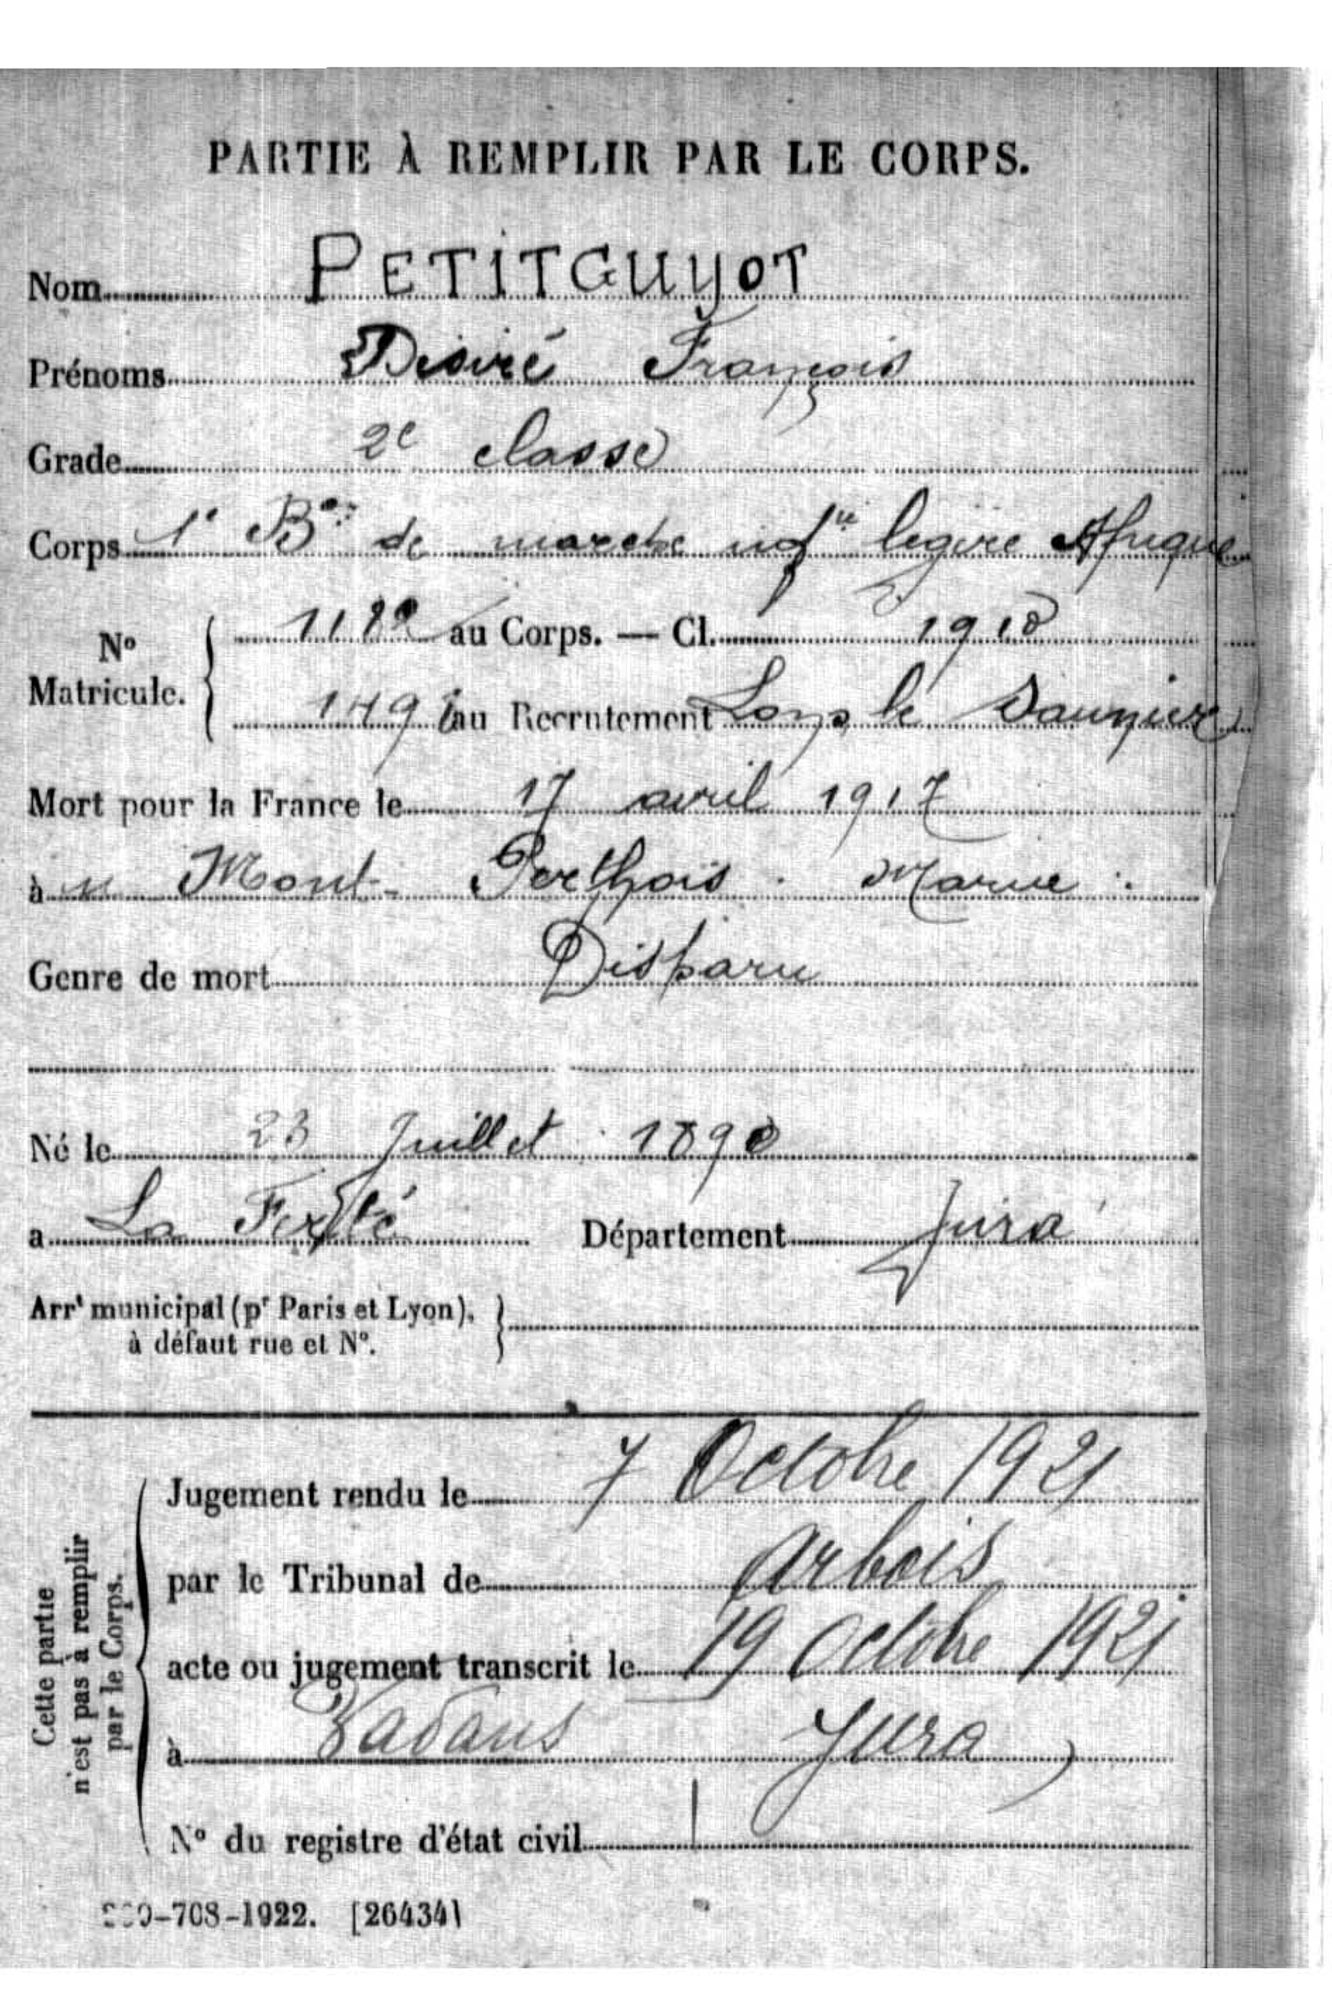 PARTIE À REMPLIR PAR LE CORPS.
Nom PETITGUYOT
Prénoms Désiré François
Grade 2e classe
Corps 1er Bon de marche infie légère Afrique
No Matricule. 1182 au Corps. — Cl. 1910
149 au Recrutement Lons le Saunier
Mort pour la France le 17 avril 1917
à Mont Perthois Marne
Genre de mort Disparu
Né le 23 Juillet 1890
a La Ferté Département Jura
Arrt municipal (pr Paris et Lyon),
à défaut rue et No.
Cette partie
n'est pas à remplir
par le Corps.
Jugement rendu le 7 Octobre 1921
par le Tribunal de Arbois
acte ou jugement transcrit le 19 Octobre 1921
à Vadans Jura
No du registre d'état civil
-708-1922. [26434]